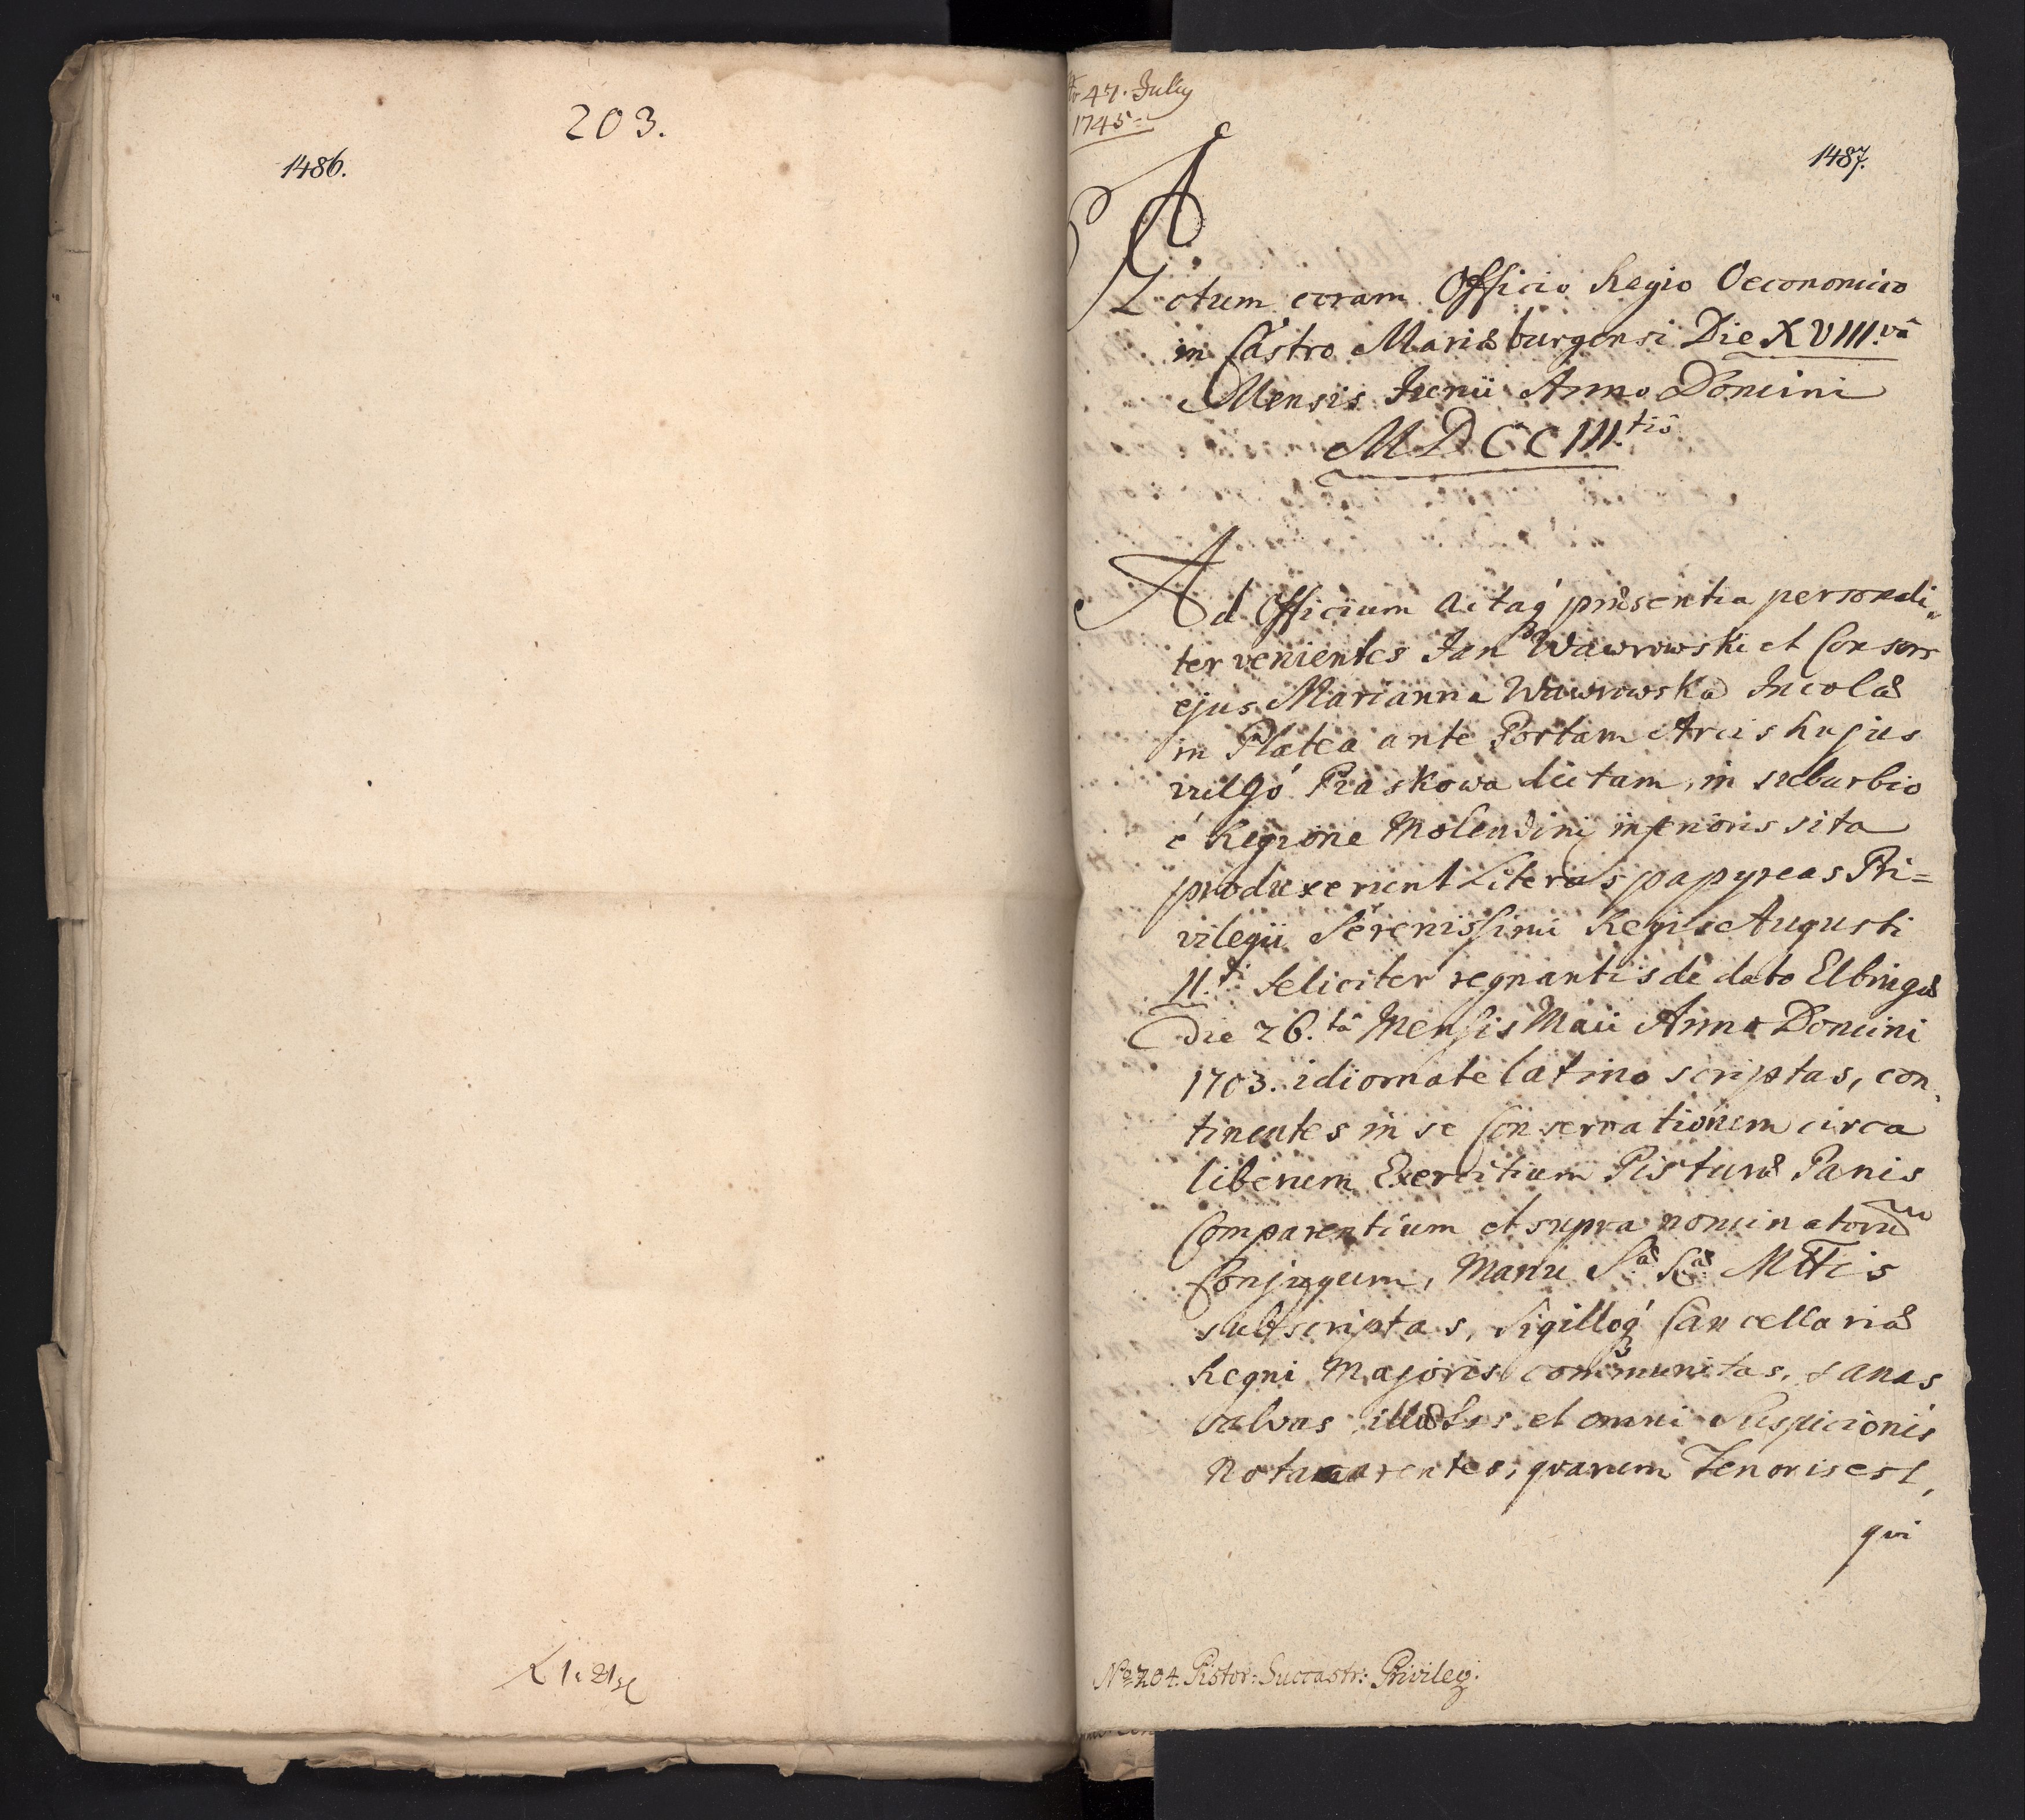 203.
1486.
47. July
1745.
1487.
Actum coram Officio Regio Oeconomico
in Castro Mariæburgensi Die XVIII.vâ
Mensis Junii Anno Domini
MDCCIII.tiô
Ad Officium Actaq́ præsentia personali„
ter venientes Jan Wawrowski et Consors
ejus Marianna Wawrowska Incolæ
in Platea ante Portam Arcis hujus
vulgó Piaskowa dictam, in suburbio
é Regione Molendini inferioris sita
produxerunt Literas papyreas Pri=
vilegii Serenissimi Regis Augusti
II.di feliciter regnantis de dato Elbingæ
Die 26.tâ Mensis Maii Anno Domini
1703. idiomate latino scriptas, con„
tinentes in se Conservationem circa
liberum Exercitium Pisturæ Panis
Comparentium et supra nominatoru
Conjugum, Manu S.æ R.æ Mttis
subscriptas, Sigilloq́ Cancellariæ
Regni Majoris communitas, sanas
salvas illæsas et omni Suspicionis
nota carentes, quarum Tenor is est,
qui
No 204. Pistor: Succastr: Privileg.